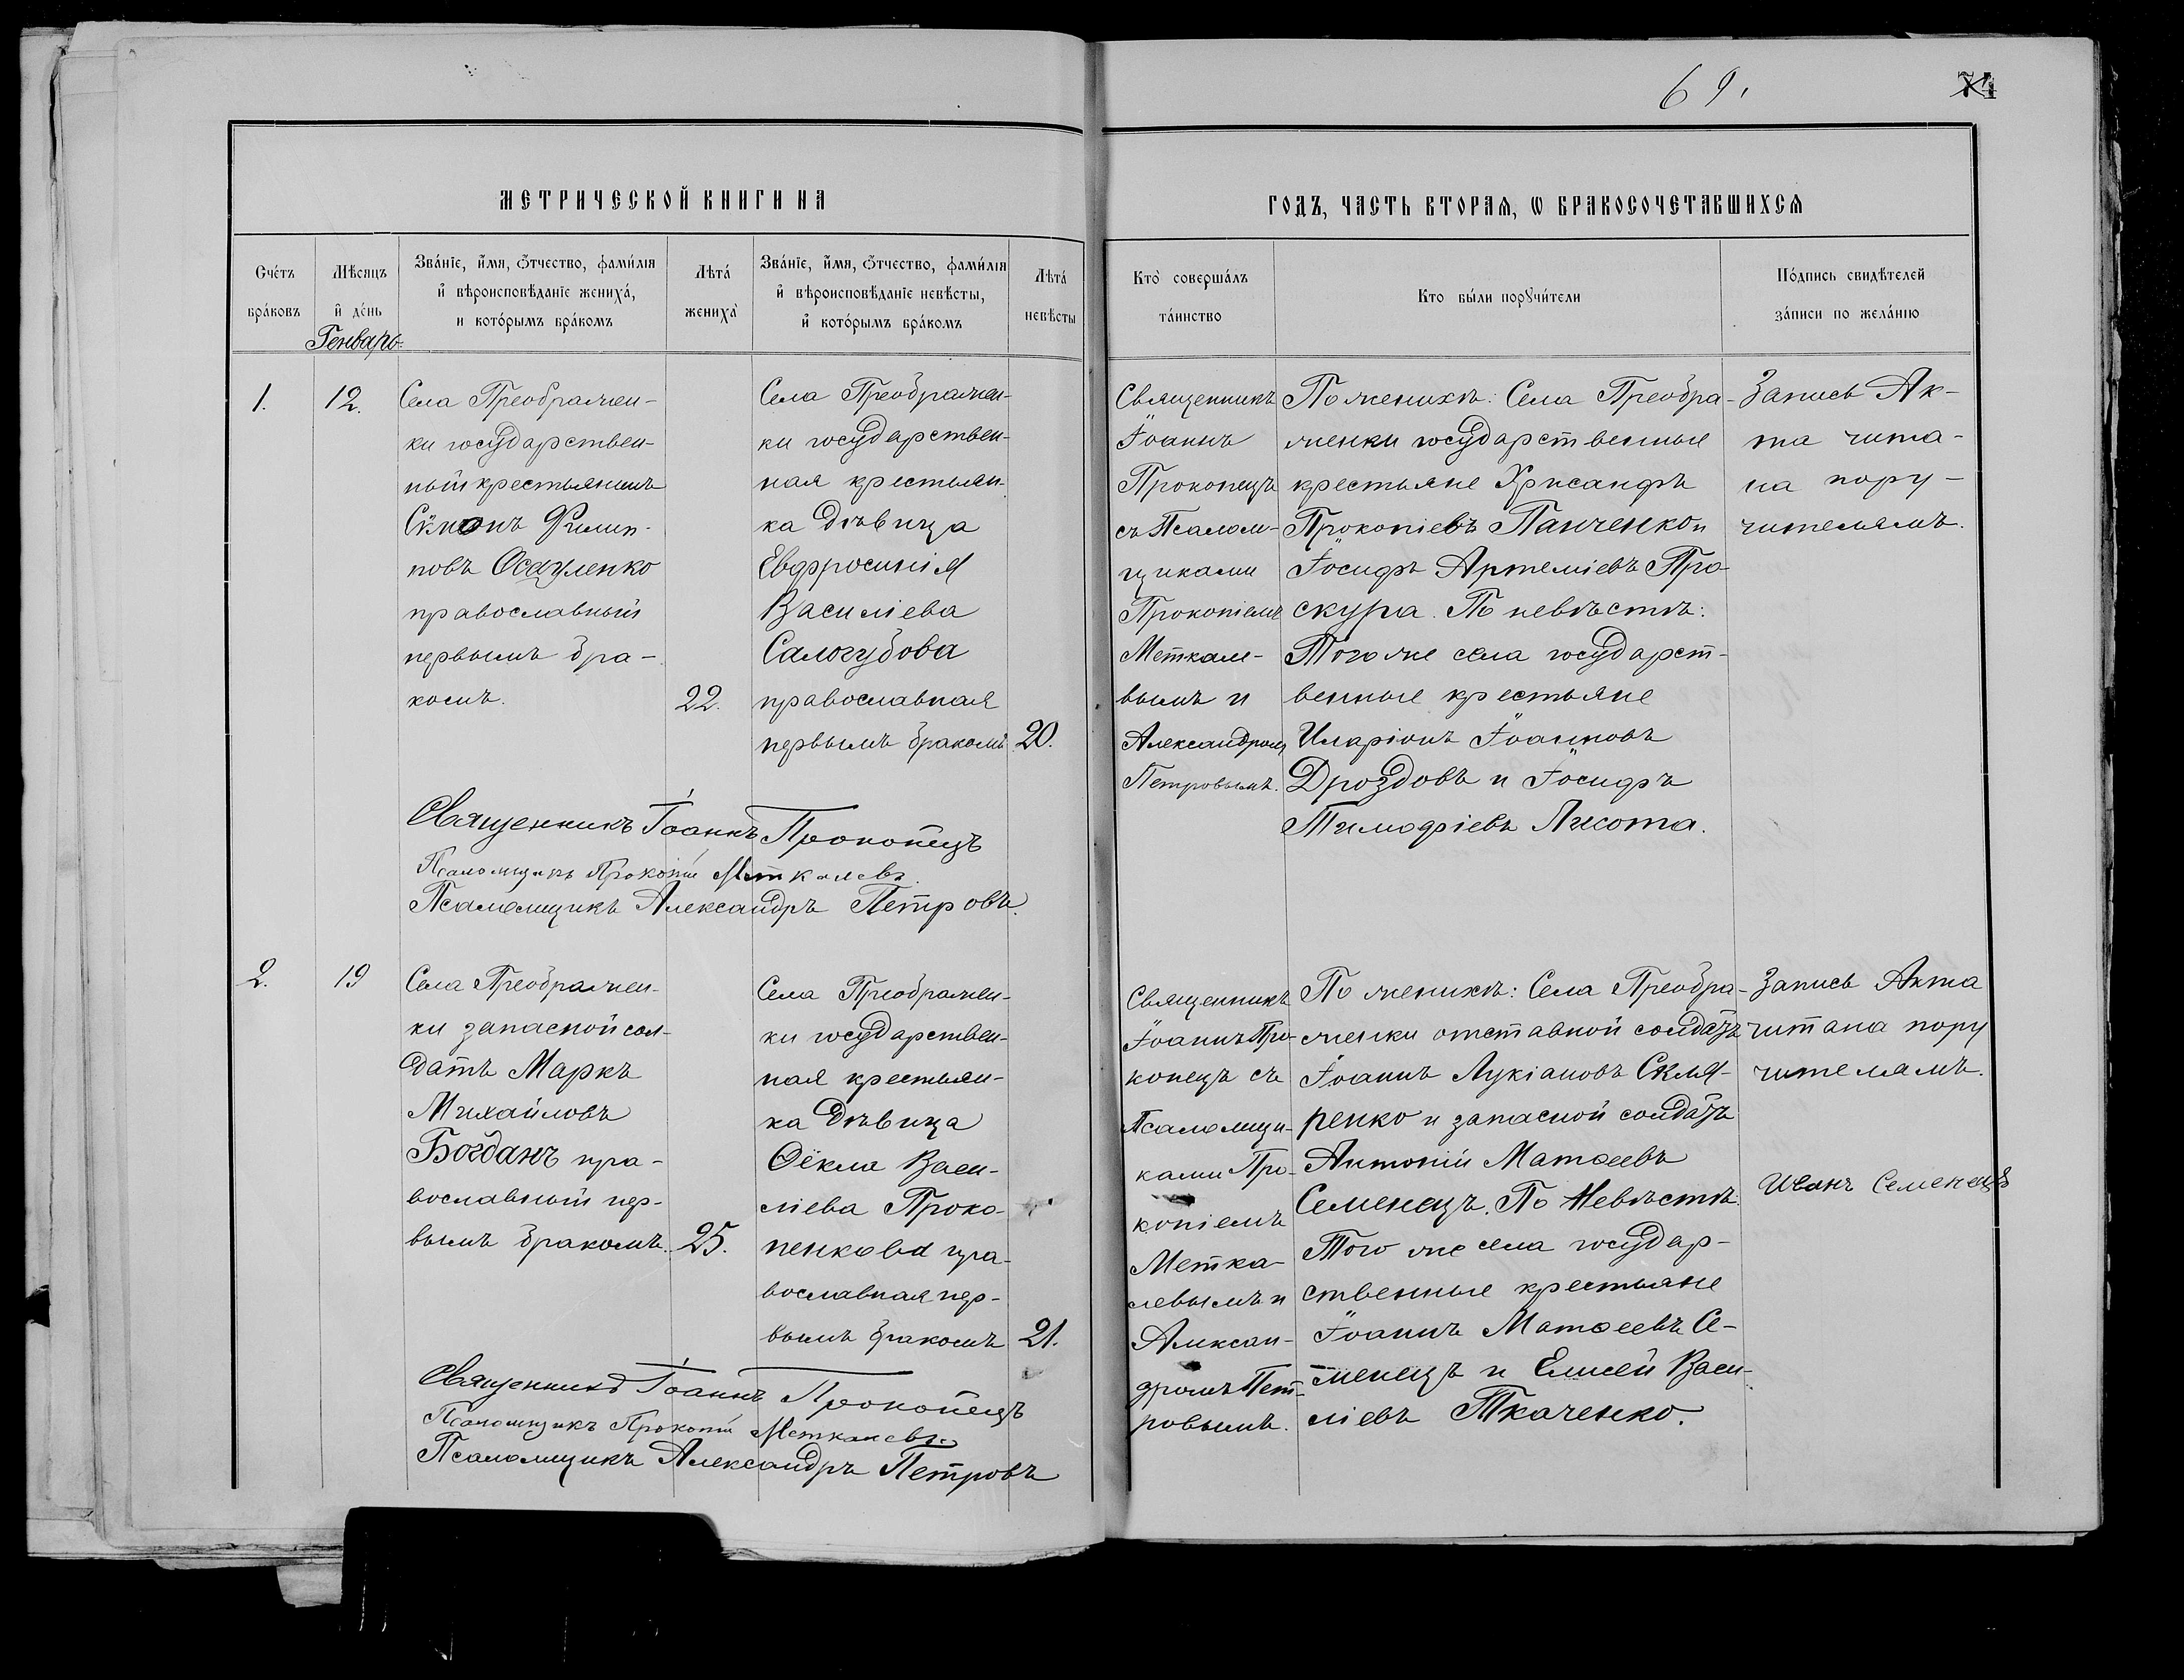 69.
74
МЕТРИЧЕСКОЙ КНИГИ НА
ГОДЪ, ЧАСТЬ ВТОРАѦ, Ѡ БРАКОСОЧЕТАВШИХСѦ
Счéтъ
брáковъ
Мѣ́сяцъ
и҆ дéнь
Звáнїе, и҆́мя, ѻ҆́тчество, фамѝлїя
и҆ вѣроисповѣ́данїе женихá,
и котóрымъ брáкомъ
Лѣтá
женихà
Звáнїе, и҆́мя, ѻ҆́тчество, фамѝлїя
и҆ вѣроисповѣ́данїе невѣ́сты,
и҆ котóрымъ брáкомъ
Лѣтá
невѣ́сты
Ктò совершáлъ
тáинство
Кто бы́ли порꙋчи́тели
Пóдпись свидѣ́телей
зáписи по желáнїю
Генварь.
1.
12.
Села Преображен-
ки государствен-
ный крестьянинъ
Филип-
повъ Осауленко
православный
первымъ бра-
комъ.
22.
Села Преображен-
ки государствен-
ная крестьян-
ка дѣвица
Евфросинія
Василіева
Салогубова
православная
первымъ бракомъ
20.
Священникъ
Іоаннъ
Прокопецъ
съ Псалом-
щиками
Прокопіемъ
Меткале-
вымъ и
Александромъ
Петровымъ.
По женихѣ: Села Преобра-
женки государственные
крестьяне Хрисанфъ
Прокопіевъ Панченко и
Іосифъ Артеміевъ Про-
скура. По невѣстѣ:
Того же села государст-
венные крестьяне
Иларіонъ Іоанновъ
Дроздовъ и Іосифъ
Тимофіевъ Лисота.
Запись Ак-
та чита-
на пору-
чителямъ.
Священникъ Іоаннъ Прокопецъ
Псаломщикъ Прокопій Меткалевъ.
Псаломщикъ Александръ Петровъ.
2.
19
Села Преображен-
ки запасной сол-
датъ Маркъ
Михайловъ
Богданъ пра-
вославный пер-
вымъ бракомъ.
25.
Села Преображен-
ки государствен-
ная крестьян-
ка дѣвица
Ѳёкла Васи-
ліева Проко-
пенкова пра-
вославная пер-
вымъ бракомъ
21.
Священникъ
Іоаннъ Про-
копецъ съ
Псаломщи-
ками Про-
копіемъ
Метка-
левымъ и
Алексан-
дромъ Пет-
ровымъ.
По женихѣ: Села Преобра-
женки отставной солдатъ
Іоаннъ Лукіановъ Скля-
ренко и запасной солдатъ
Антоній Матѳеевъ
Семенецъ. По Невѣстѣ:
Того же села государ-
ственные крестьяне
Іоаннъ Матѳеевъ Се-
менецъ и Елисей Васи-
ліевъ Ткаченко.
Запись Акта
читана пору
чителямъ.
Иванъ Семенецъ
Священникъ Іоаннъ Прокопецъ
Псаломщикъ Прокопій Меткалевъ.
Псаломщикъ Александръ Петровъ